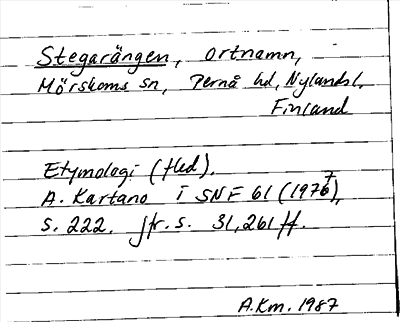 Stegarängen, ortnamn,
Mörskoms sn, Pernå hd, Nylandsl,
Finland
Etymologi (fled).
A. Kartano i SNF 61 (1977),
s. 222. Jfr. s. 31, 261 ff.
A.Km. 1987